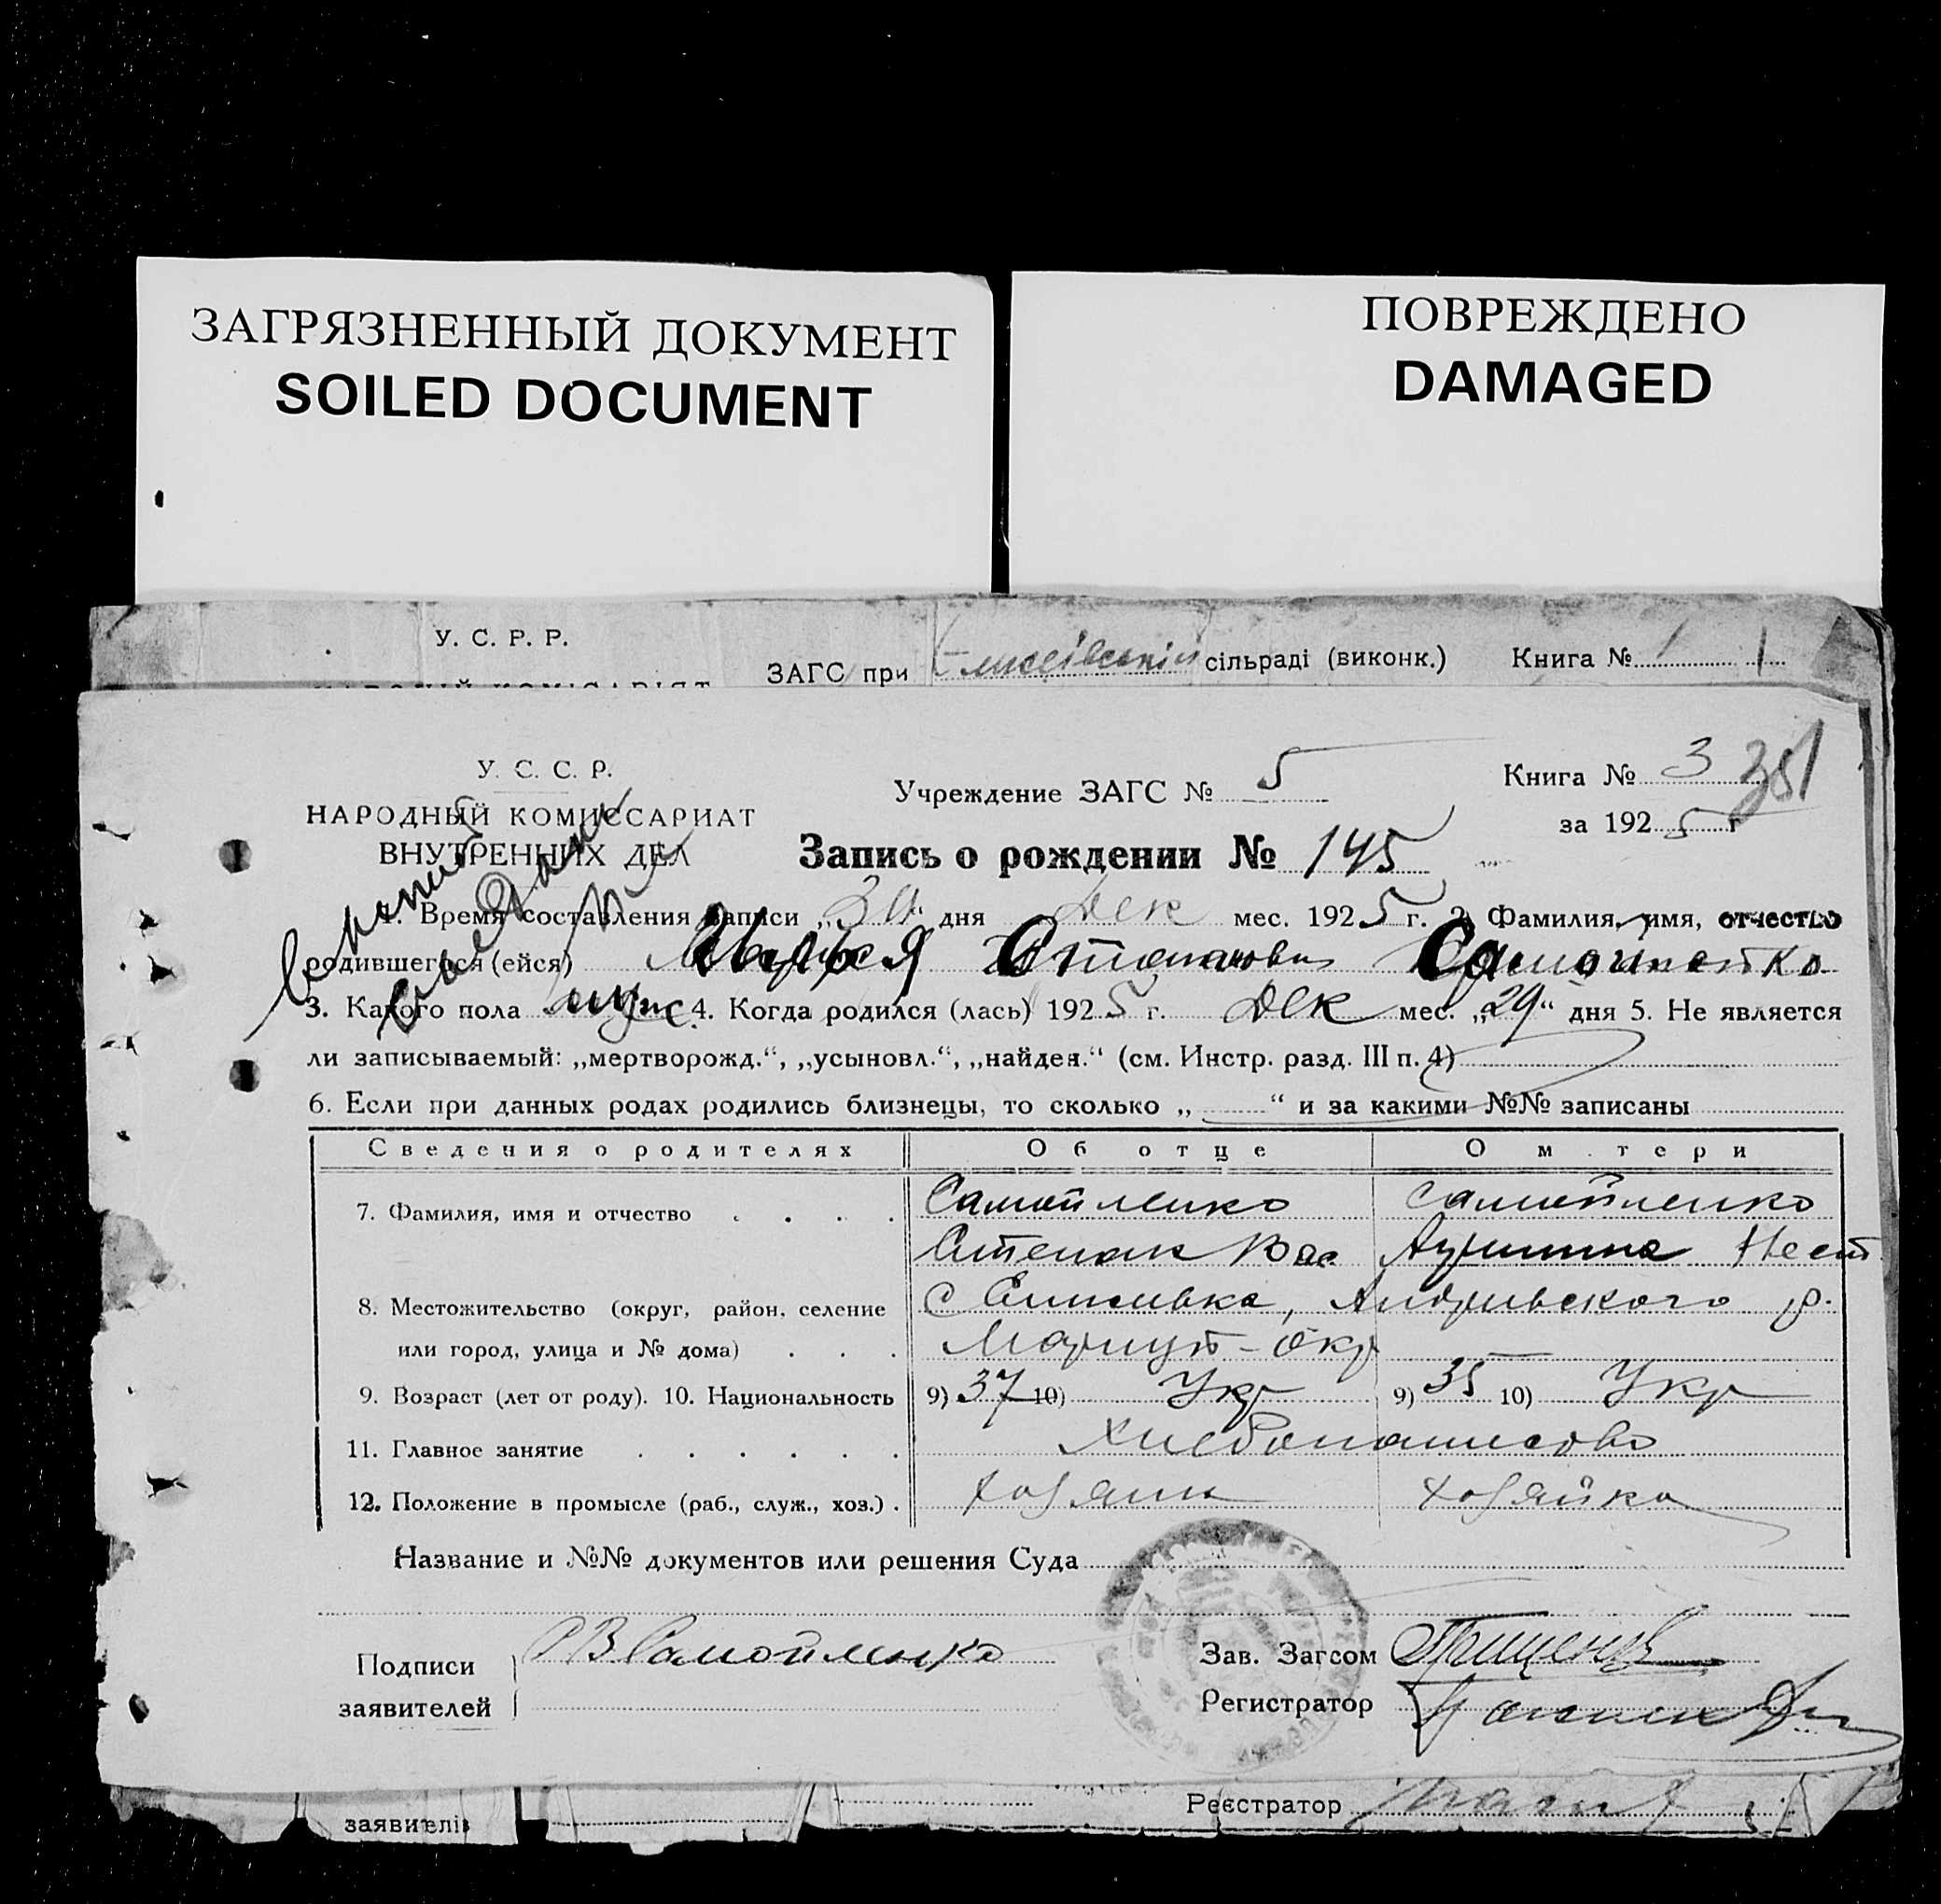 ЗАГРЯЗНЕННЫЙ ДОКУМЕНТ
SOILED DOCUMENT
ПОВРЕЖДЕНО
DAMAGED
У. С. Р. Р.
ЗАГС при сільраді (виконк.) Книга № 1 1
У. С. С. Р.
НАРОДНЫЙ КОМИССАРИАТ
ВНУТРЕННИХ ДЕЛ
Учреждение ЗАГС № 5
Книга № 3 351
за 1925 г
Запись о рождении № 145
1. Время составления записи „30“ дня Дек мес. 1925 г. 2. Фамилия, имя, отчество
родившегося (ейся) Степанович Самойленко
3. Какого пола муж. 4. Когда родился (лась) 1925 г. Дек мес. „29“ дня 5. Не является
ли записываемый: „мертворожд.“, „усыновл.“, „найден.“ (см. Инстр. разд. III п. 4)
6. Если при данных родах родились близнецы, то сколько „ “ и за какими №№ записаны
Сведения о родителях Об отце О м тери
7. Фамилия, имя и отчество . . . . Самойленко Самойленко
Степан Вас Нест
8. Местожительство (округ, район, селение с Елисивка, Андривского р.
или город, улица и № дома) . . . Мариуп-окр
9. Возраст (лет от роду). 10. Национальность 9) 37 10) Укр 9) 35 10) Укр
11. Главное занятие . . . . . . Хлебопашество
12. Положение в промысле (раб., служ., хоз.) . Хозяин Хозяйка
Название и №№ документов или решения Суда
Подписи
заявителей
С В Самойленко
Зав. Загсом
Регистратор
заявителів
Реєстратор